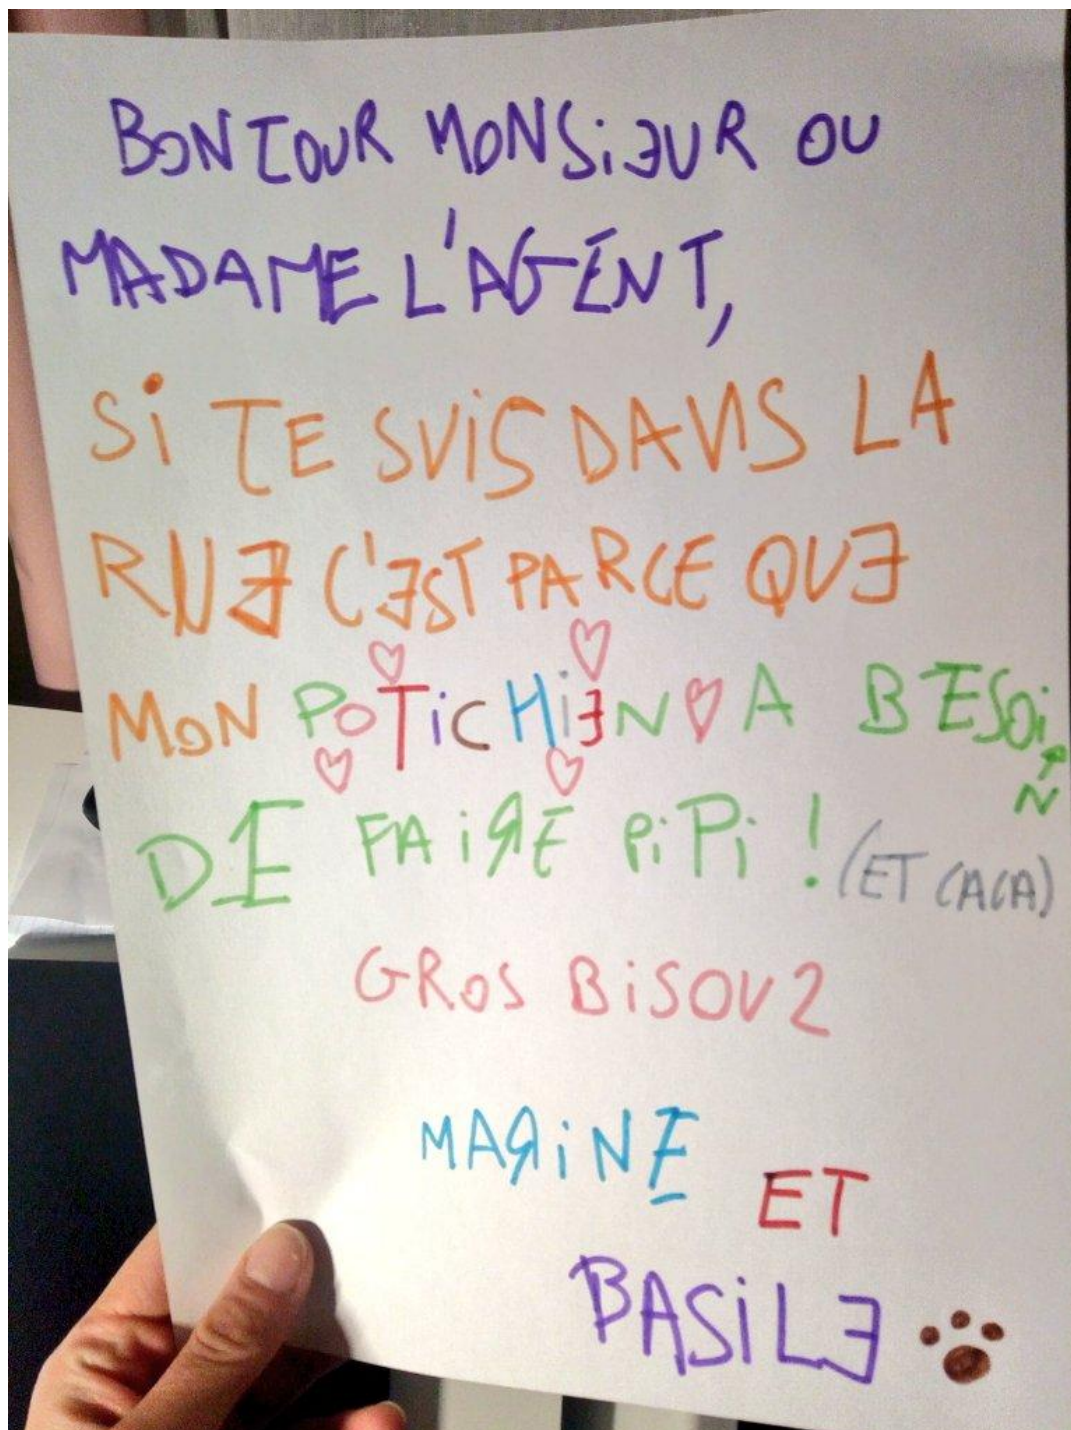 BONJOUR MONSiEUR OU
MADAME L'AGENT,
Si JE SUiS DANS LA
RUE C'EST PARCE QUE
MON POTiCHiEN A BESOiN
DE FAiRE PiPi ! (ET CACA)
GROS BiSOUZ
MARiNE
ET
BASiLE